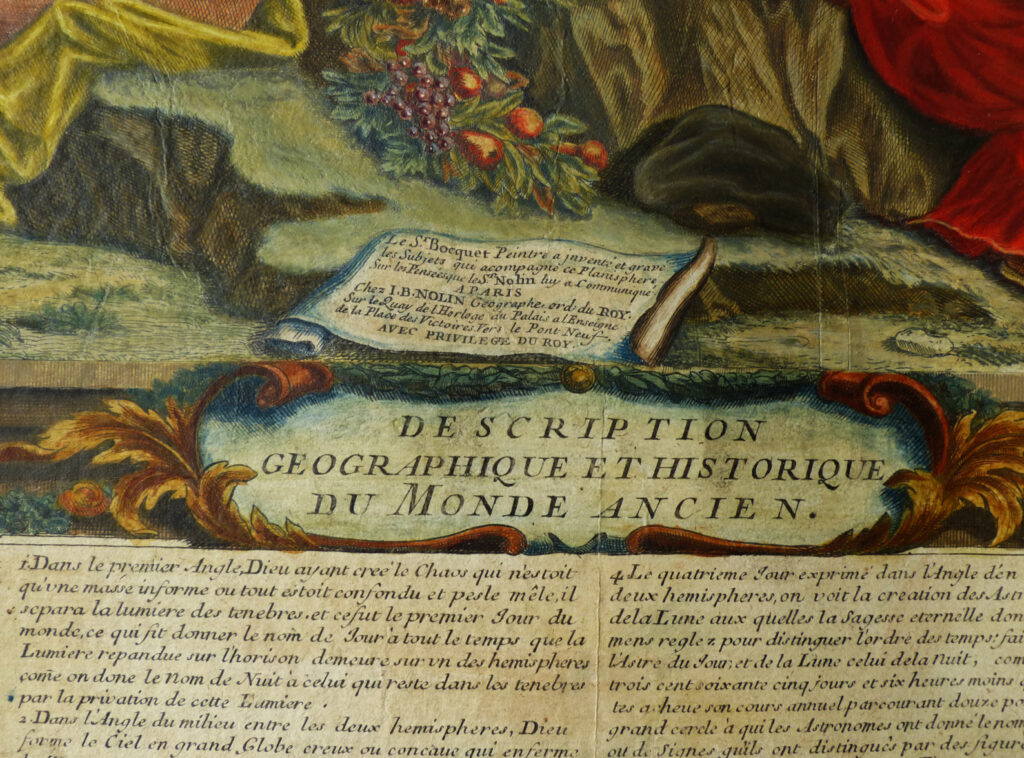 Le Sr. Bocquet Peintre a jnventé et gravé
les Subjets qui acompagne ce Planisphere
Sur les Penseés que le Sr. Nolin luy a Communiqué
A PARIS
Chez I.B.NOLIN Geographe ord: du ROY.
Sur le Quay de l'Horloge du Palais a l'Enseigne
de la Place des Victoires Vers le Pont Neuf
AVEC PRIVILEGE DU ROY.
DESCRIPTION
GEOGRAPHIQUE ET HISTORIQUE
DU MONDE ANCIEN.
1. Dans le premier Angle, Dieu ayant creé le Chaos qui n'estoit
qu'vne masse informe ou tout estoit confondu et pesle mêle, il
separa la lumiere des tenebres, et ce fut le premier Jour du
monde, ce qui fit donner le nom de Jour a tout le temps que la
Lumiere repandue sur l'horison demeure sur vn des hemispheres
come on done le Nom de Nuit a celui qui reste dans les tenebres
par la privation de cette Lumiere.
2. Dans l'Angle du milieu entre les deux hemispheres, Dieu
forme le Ciel en grand Globe creux ou concave qui enferme
4. Le quatrieme Jour exprimé dans l'Angle d'en
deux hemispheres, on voit la creation des Ast
de la Lune aux quelles la Sagesse eternelle don
mens reglez pour distinguer l'ordre des temps; fai
l'Astre du Jour, et de la Lune celui de la Nuit; com
trois cent soixante cinq jours et six heures moins
tes acheue son cours annuel parcourant douze po
grand cercle a qui les Astronomes ont donné le nom
ou de Signes qu'ils ont distingués par des figure